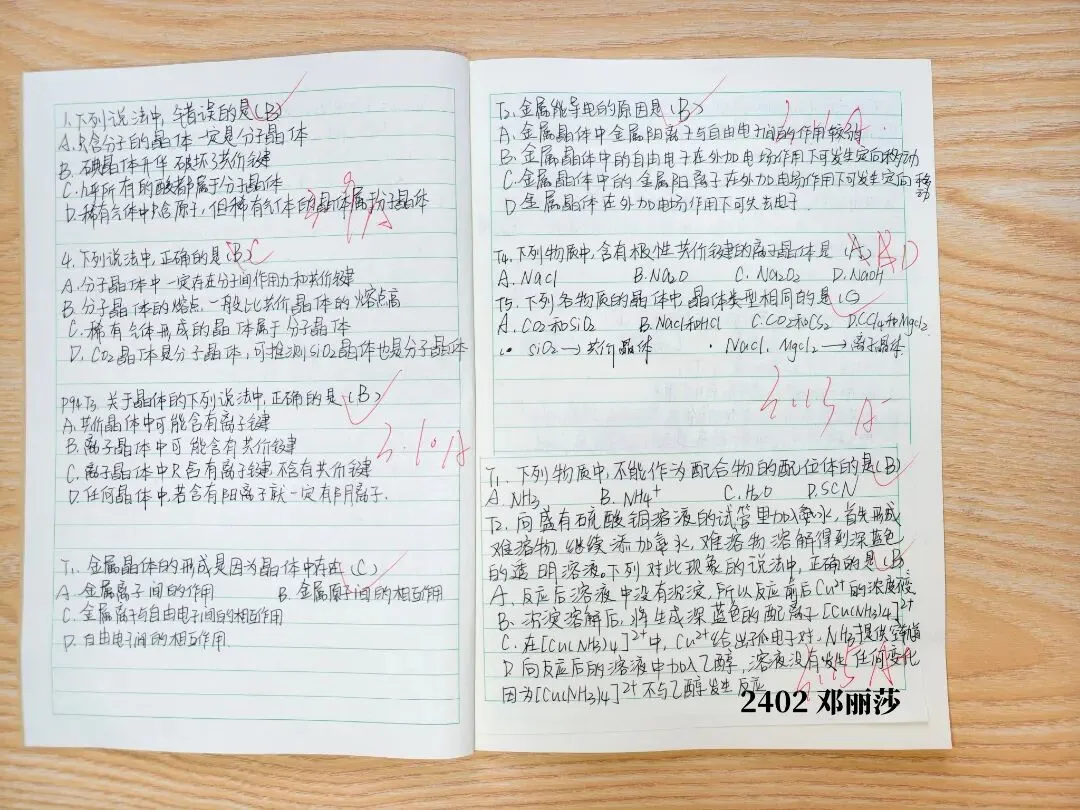 1.下列说法中,错误的是(B)
A.只含分子的晶体一定是分子晶体
B.碘晶体升华破坏了共价键
C.几乎所有的酸都属于分子晶体
D.稀有气体中只含原子,但稀有气体的晶体属于分子晶体
3.9 A
4.下列说法中,正确的是(B)C
A.分子晶体中一定存在分子间作用力和共价键
B.分子晶体的熔点一般比共价晶体的熔点高
C.稀有气体形成的晶体属于分子晶体
D.CO2晶体是分子晶体,可推测SiO2晶体也是分子晶体
P94 T3.关于晶体的下列说法中,正确的是(B)
A.共价晶体中可能含有离子键
B.离子晶体中可能含有共价键
C.离子晶体中只含有离子键,不含有共价键
D.任何晶体中,若含有阳离子就一定有阴离子.
3.10 A
T1.金属晶体的形成是因为晶体中存在(C)
A.金属离子间的作用 B.金属原子间的相互作用
C.金属离子与自由电子间的相互作用
D.自由电子间的相互作用.
T2.金属能导电的原因是(B)
A.金属晶体中金属阳离子与自由电子间的作用较弱
B.金属晶体中的自由电子在外加电场作用下可发生定向移动
C.金属晶体中的金属阳离子在外加电场作用下可发生定向移动
D.金属晶体在外加电场作用下可失去电子.
T4.下列物质中,含有极性共价键的离子晶体是(A)D
A.NaCl B.Na2O C.Na2O2 D.NaOH
T5.下列各物质的晶体中,晶体类型相同的是(C)
A.CO2和SiO2 B.NaCl和HCl C.CO2和CS2 D.CCl4和MgCl2
SiO2→共价晶体 · NaCl、MgCl2→离子晶体.
3.13 A
T1.下列物质中,不能作为配合物的配位体的是(B)
A.NH3 B.NH4+ C.H2O D.SCN
T2.向盛有硫酸铜溶液的试管里加入氨水,首先形成
难溶物,继续添加氨水,难溶物溶解得到深蓝色
的透明溶液,下列对此现象的说法中,正确的是(B)
A.反应后溶液中没有沉淀,所以反应前后Cu2+的浓度不变
B.沉淀溶解后,将生成深蓝色的配离子[Cu(NH3)4]2+
C.在[Cu(NH3)4]2+中,Cu2+给出孤电子对,NH3提供空轨道
D.向反应后的溶液中加入乙醇,溶液没有发生任何变化
因为[Cu(NH3)4]2+不与乙醇发生反应
2402 邓丽莎